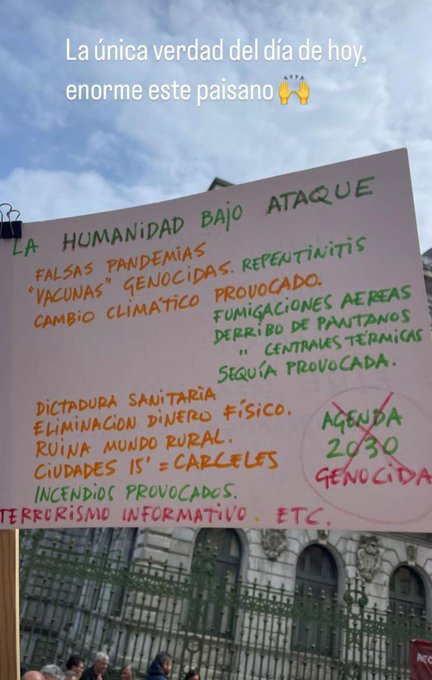 La única verdad del día de hoy,
enorme este paisano 🙌
LA HUMANIDAD BAJO ATAQUE
FALSAS PANDEMIAS
"VACUNAS" GENOCIDAS. REPENTINITIS
CAMBIO CLIMÁTICO PROVOCADO.
FUMIGACIONES AEREAS
DERRIBO DE PANTANOS
" CENTRALES TÉRMICAS
SEQUÍA PROVOCADA.
DICTADURA SANITARIA
ELIMINACION DINERO FÍSICO.
RUINA MUNDO RURAL.
CIUDADES 15' = CARCELES
INCENDIOS PROVOCADOS.
TERRORISMO INFORMATIVO. ETC.
AGENDA
2030
GENOCIDA